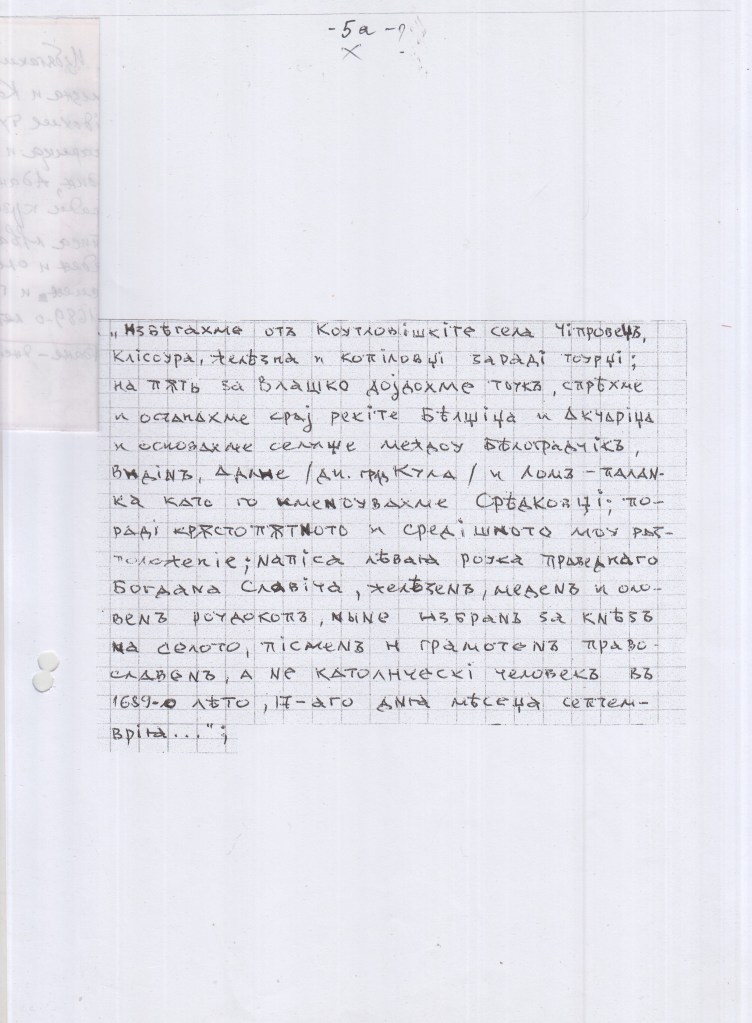 -5а-
„Избѣгахме отъ Коутловішкіте села Чіпровецъ,
Кліссура, Желѣзна и Копіловці заради тоурці;
на пѫть за Влашко дојдохме тоукъ, спрѣхме
и останахме крај реките Бѣлшіца и Акчаріца
и основахме селище междоу Бѣлоградчікъ,
Видінъ, Адлие /дн. град Кула/ и Ломъ-палан-
ка като го именоувахме Срѣдковці; по-
раді крѫстопѫтното и средішното моу раз-
положеніе; написа лѣваю роука праведнаго
Богдана Славіча, желѣзенъ, меденъ и оло-
венъ роудокопъ, ныне избранъ за кнѣзъ
на селото, пісменъ и грамотенъ право-
славенъ, а не католически человекъ въ
1689-о лѣто, 17-аго дню мѣсеца септем-
врію...";